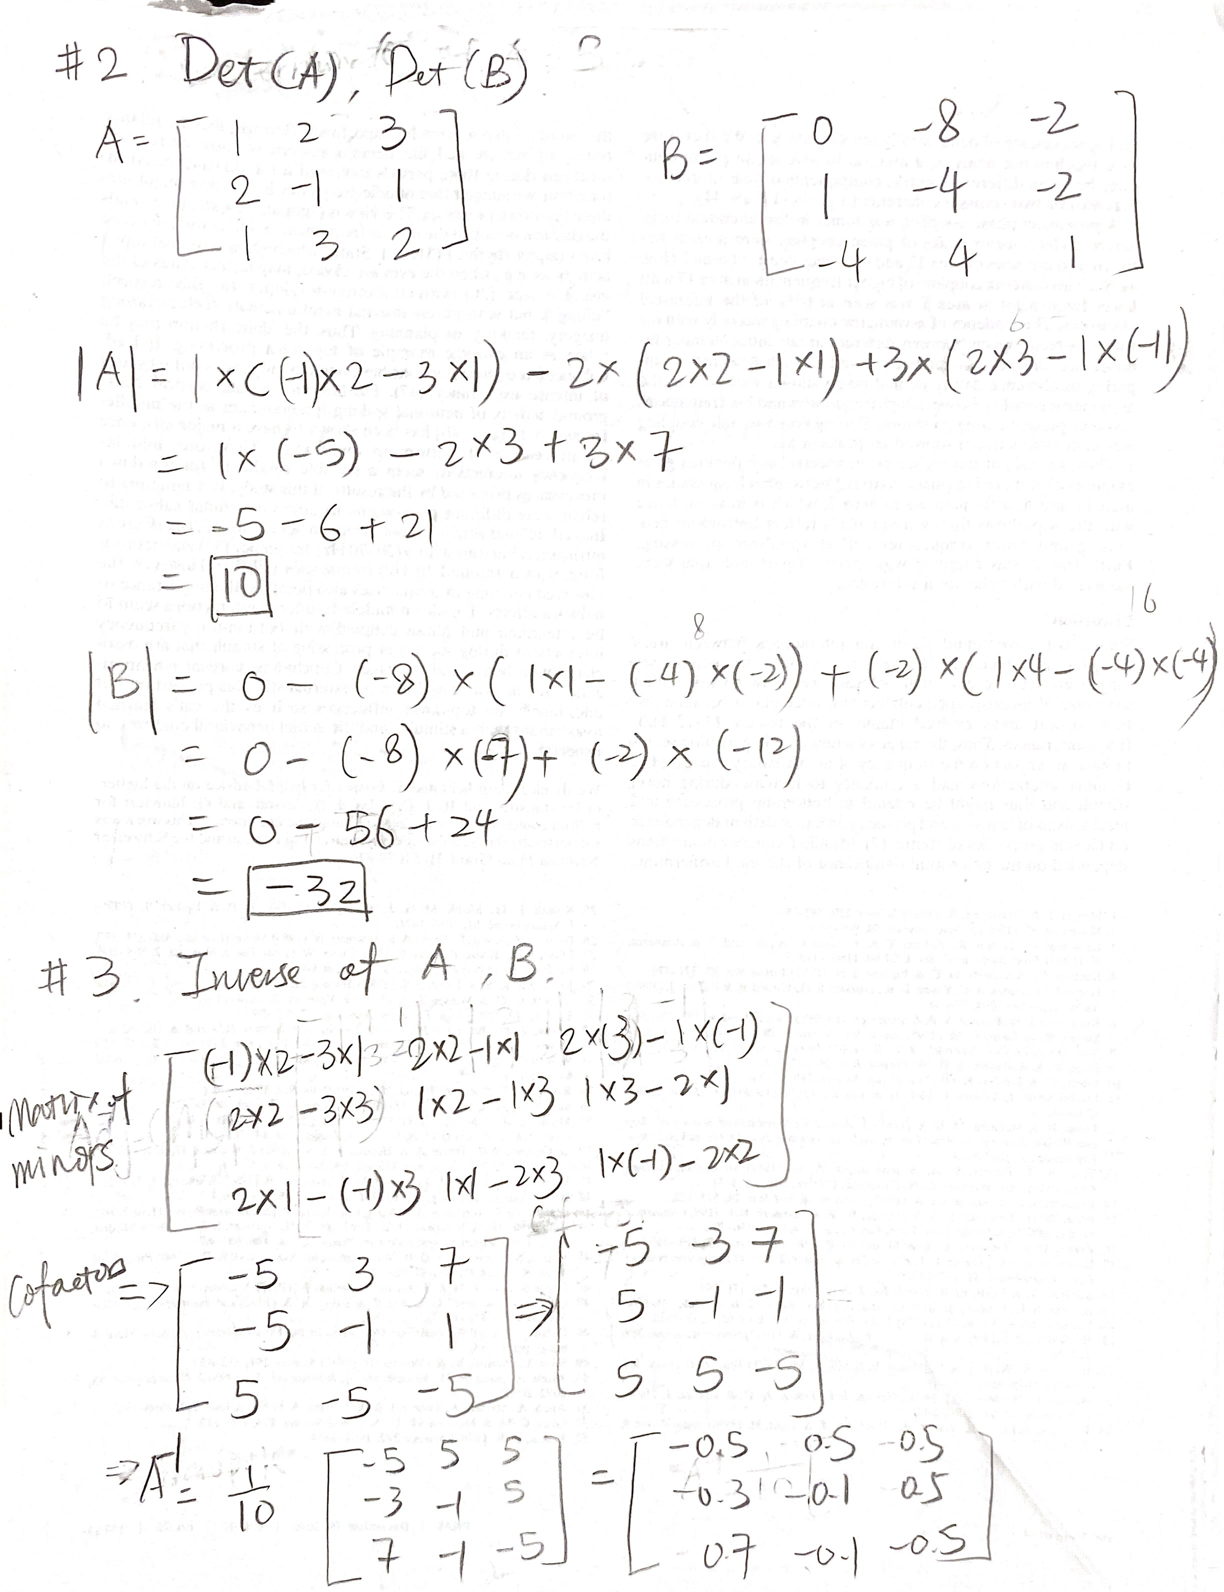 #2 Det(A), Det(B)
A = [ 1 2 3
2 -1 1
1 3 2 ]
B = [ 0 -8 -2
1 -4 -2
-4 4 1 ]
6
|A| = 1 × ((-1)×2 - 3×1) - 2× (2×2 - 1×1) + 3× (2×3 - 1×(-1))
= 1× (-5) - 2×3 + 3×7
= -5 - 6 + 21
= 10
8 16
|B| = 0 - (-8) × (1×1 - (-4) ×(-2)) + (-2) × (1×4 - (-4)×(-4))
= 0 - (-8) × (-7) + (-2) × (-12)
= 0 - 56 + 24
= -32
#3. Inverse of A, B.
Matrix of minors
[ (-1)×2 - 3×1 2×2 - 1×1 2×(3) - 1×(-1)
(2×2 - 3×3) 1×2 - 1×3 1×3 - 2×1
2×1 - (-1)×3 1×1 - 2×3 1×(-1) - 2×2 ]
Cofactors => [ -5 3 7
-5 -1 1
5 -5 -5 ]
=> [ -5 -3 7
5 -1 -1
5 5 -5 ]
=> A⁻¹ = 1/10 [ -5 5 5
-3 -1 5
7 -1 -5 ]
= [ -0.5 0.5 -0.5
-0.3 -0.1 0.5
0.7 -0.1 -0.5 ]